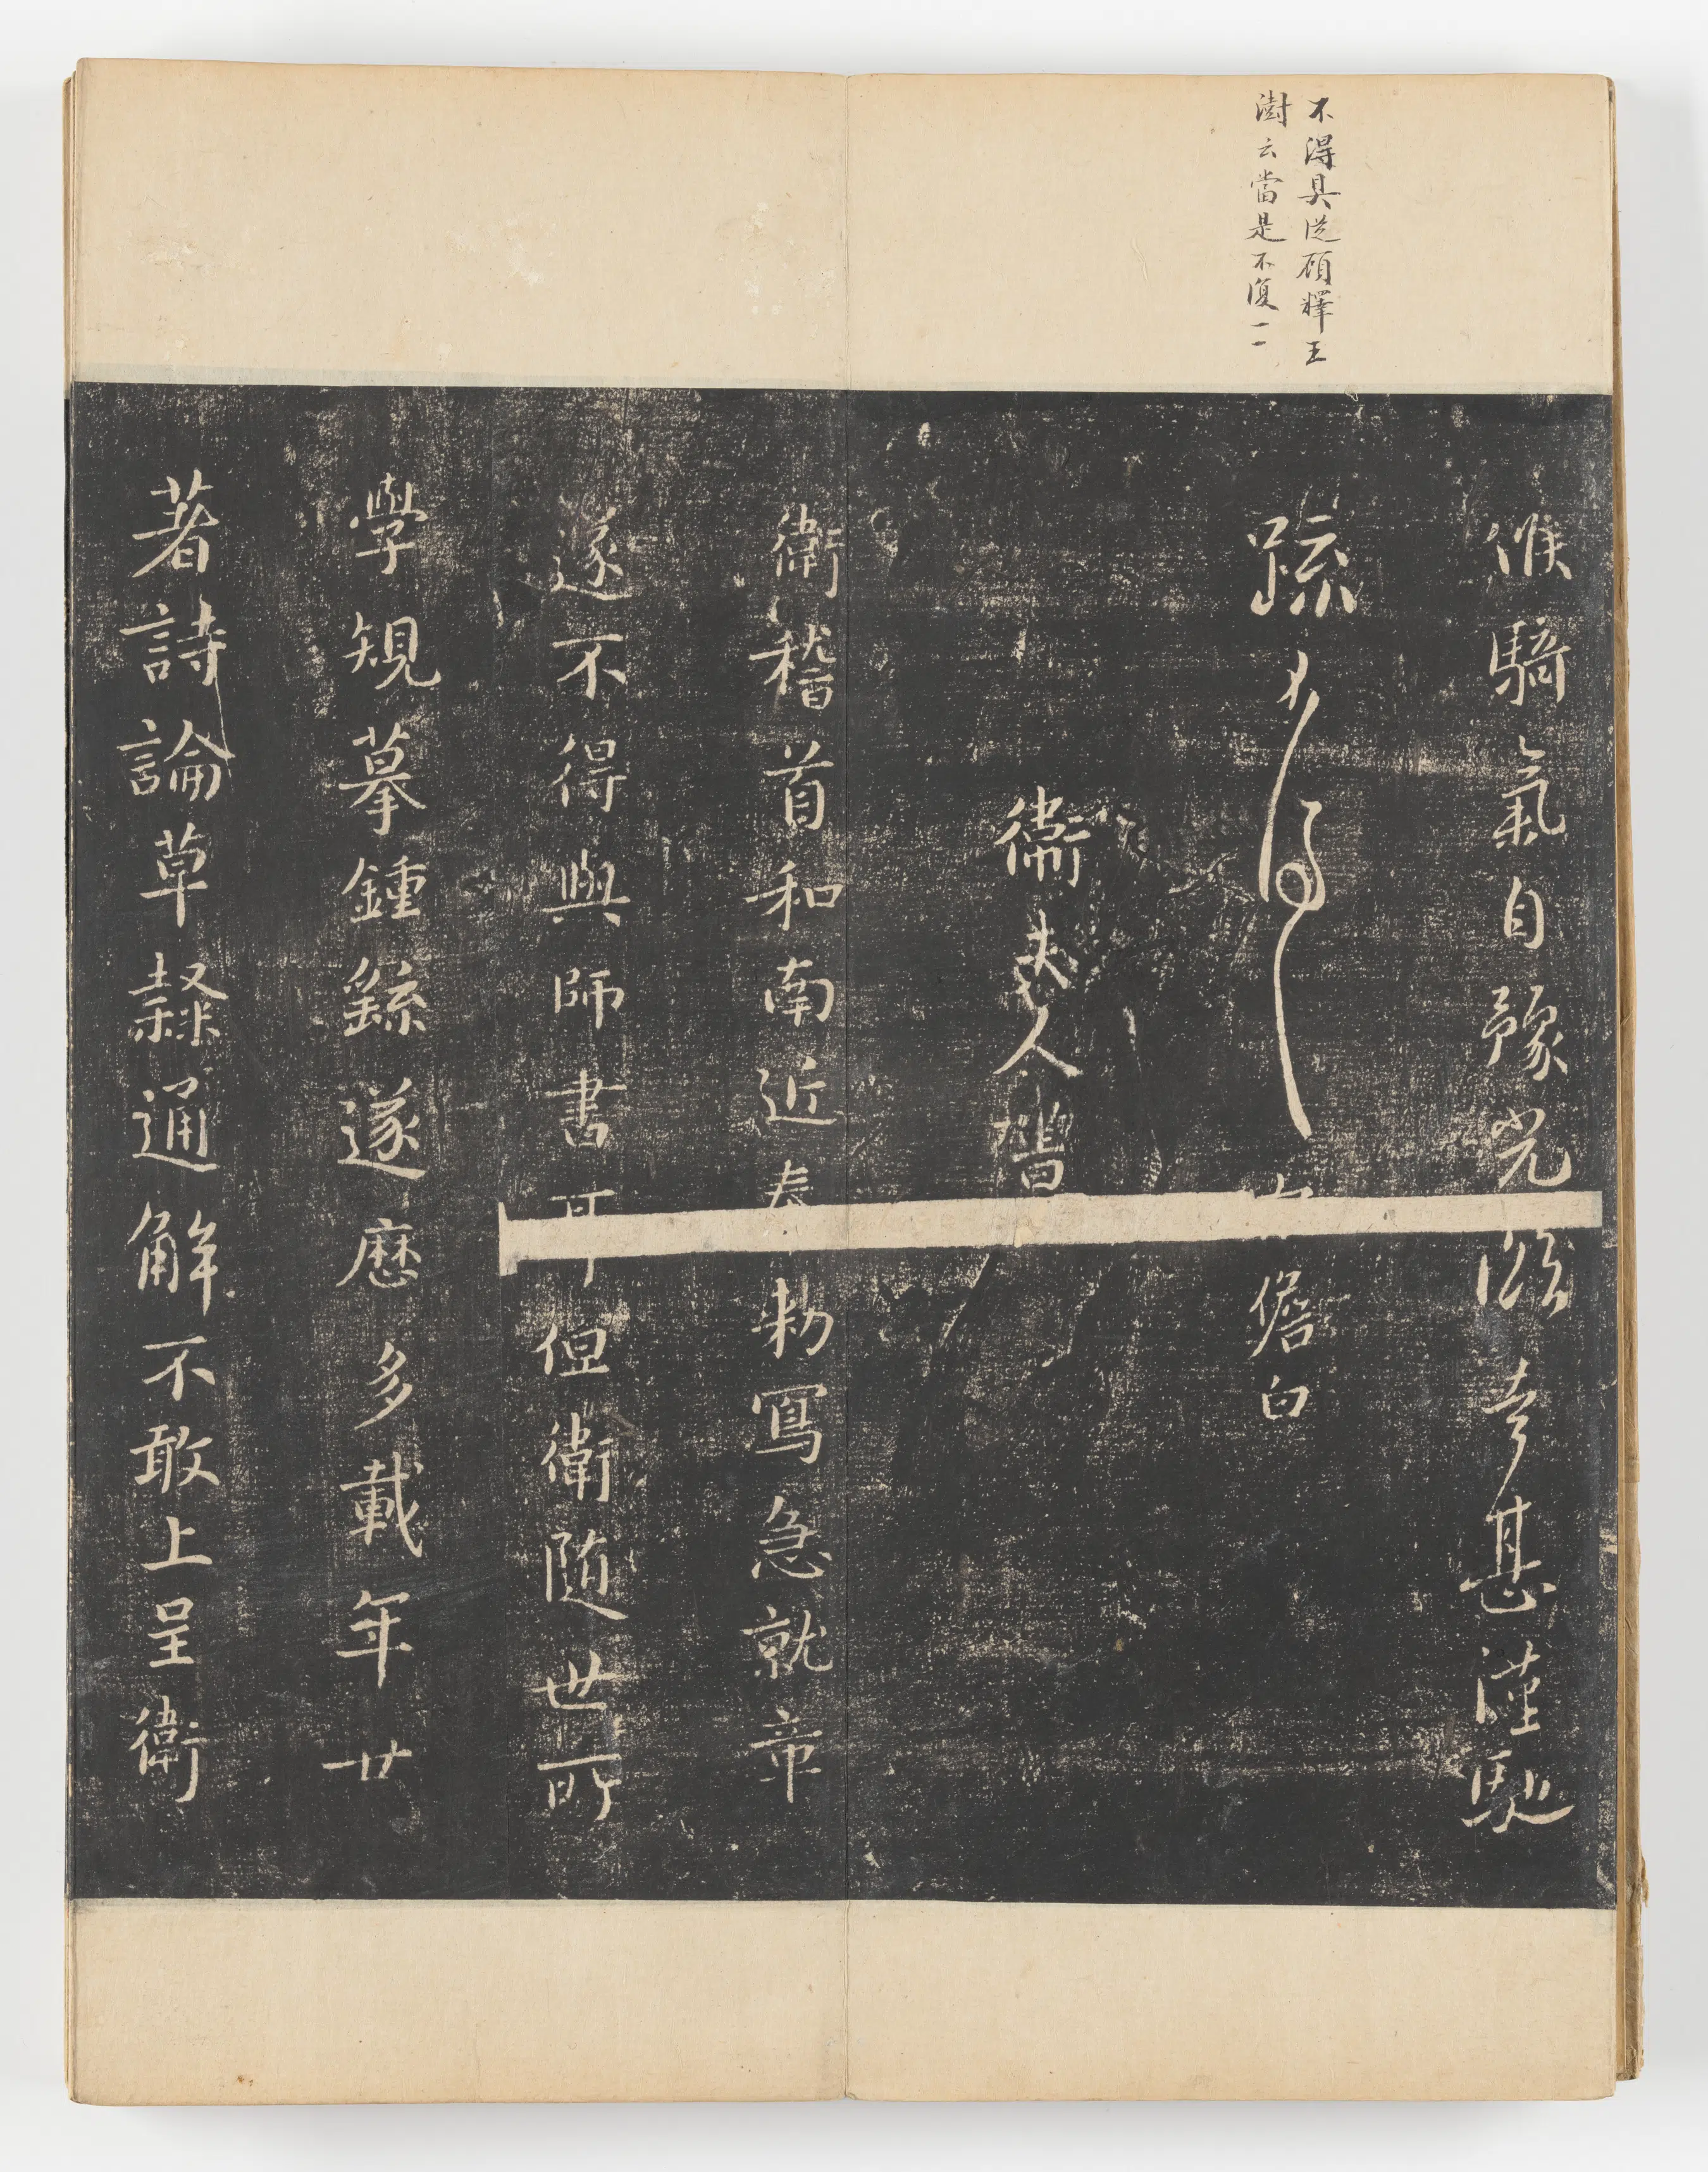 不得具從顧釋王
澍云當是不復一一
騎氣自豫光幸甚謹馳
疏不得具儋白
衛夫人書
衛稽首和南近奉勅寫急就章
遂不得與師書耳但衛隨世所
學規摹鍾繇遂歷多載年廿
著詩論草隸通解不敢上呈衛